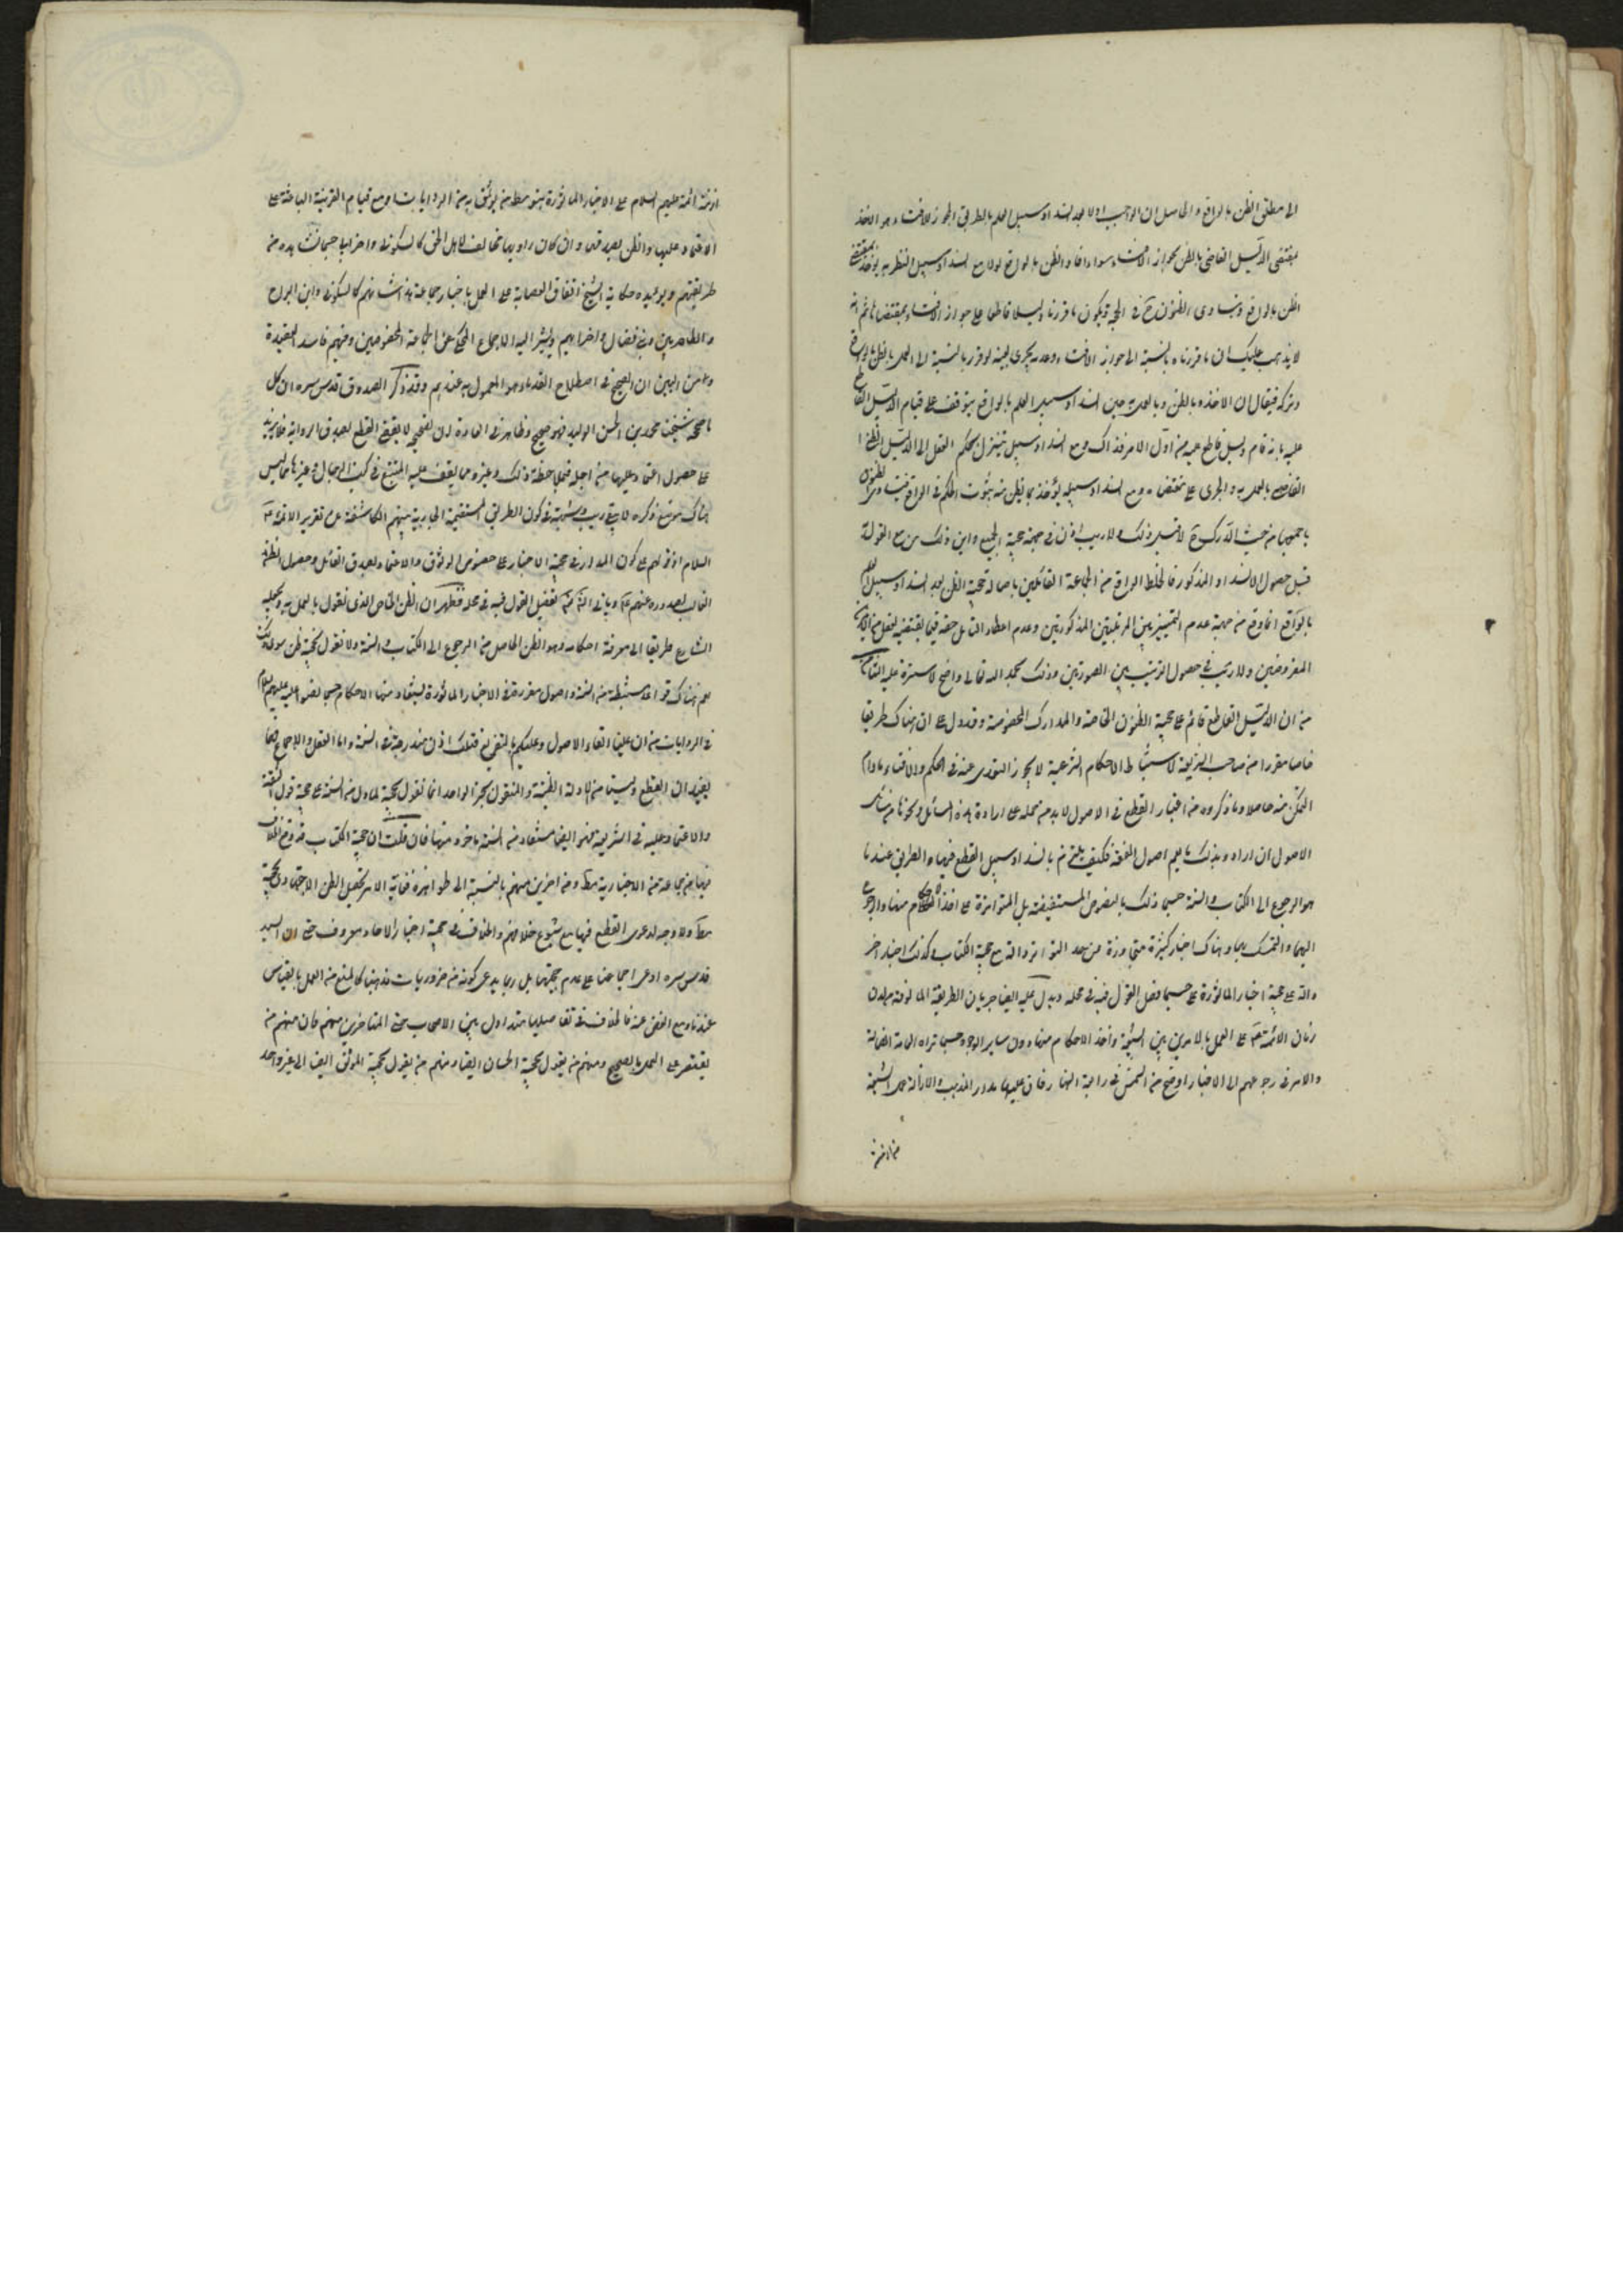 الى مطلق الظن بالواقع والحاصل ان الواجب اولا بعد انسداد سبيل العلم بالطريق المجوز للافتاء هو الاخذ
بمقتضى الدليل القاضي بالظن بجواز الافتاء سواء افاد الظن بالواقع اولا ومع انسداد سبيل الظن به يؤخذ بمقتضى
الظن بالواقع وتساوى الظنون ح في الحجية ويكون ما قررناه دليلا قاطعا على جواز الافتاء بمقتضاها ثم انه
لا يذهب عليك ان ما قررناه بالنسبة الى جواز الافتاء وعدمه يجرى بعينه لو قرر بالنسبة الى العمل بالظن بالواقع
وتركه فيقال ان الاخذ بالظن وبالعمل به حين انسداد سبيل العلم بالواقع يتوقف على قيام الدليل القاطع
عليه فانه قام دليل قاطع عليه من اول الامر فذاك ومع انسداد سبيله يتنزل بحكم العقل الى الدليل الظني
القاضي بالعمل به والجرى على مقتضاه ومع انسداد سبيله يؤخذ بما يظن منه بثبوت الحكم في الواقع فيتساوى الظنون
باجمعها من حيث المدرك ح لا قبل ذلك ولا ريب اذن في جهة حجية الجميع واين ذلك من مع القول به
قبل حصول الانسداد المذكور فالخلط الواقع من الجماعة القائلين باصالة حجية الظن بعد انسداد سبيل العلم
بالواقع انما وقع من جهة عدم التمييز بين المرتبتين المذكورتين وعدم اعطاء التأمل حقه فيما يقتضيه العقل من
المفروضين ولا ريب في حصول الترتيب بين الصورتين وذلك بحمد الله تعالى واضح لا سترة عليه الثامن
من ان الدليل القاطع قائم على حجية الظنون الخاصة والمدارك المخصوصة وقد دل على ان هناك طريقا
خاصا مقررا من صاحب الشريعة لاستنباط الاحكام الشرعية لا يجوز التعدى عنه في الحكم والافتاء ما دام
التمكن منه حاصلا وما ذكروه من اعتبار القطع في الاصول لا بد من حمله على ارادة هذه المسائل ونحوها من سائر
الاصول ان ارادوا بذلك ما يعم اصول الفقه فكيف يلتزم بانسداد سبيل القطع فيها والطريق عندنا
هو الرجوع الى الكتاب والسنة حسبما ذلك بالنصوص المستفيضة بل المتواترة على اخذ الاحكام منهما والرجوع
اليهما والتمسك بهما وهناك اخبار كثيرة متجاوزة عن حد التواتر دالة على حجية الكتاب وكذلك اخبار اخر
دالة على حجية اخبار الماثورة على حسبما فصل القول فيه في محله ويدل عليه ايضا جريان الطريقة المالوفة من لدن
زمان الائمة ع على العمل بالامرين بين الشيعة واخذ الاحكام منهما دون سائر الوجوه حسبما تراه العامة الضالة
والامر في رجوعهم الى الاخبار اوضح من الشمس في رابعة النهار فان عليها مدار المذهب ولا زالت عمل الشيعة
من لدن
ازمنة ائمة عليهم السلام على الاخبار الماثورة بتوسط من يوثق به من الروايات او مع قيام القرينة الباعثة على
الاعتماد عليها والظن بصدقها وان كان راويها مخالفا لاهل الحق كالسكوني واضرابه حسبما نشاهده من
طريقتهم ويؤيده حكاية الشيخ اتفاق العصابة على العمل باخبار جماعة هذا شانهم كالسكوني وابن الدراج
والطاطريين وبنى فضال واضرابهم ويشير اليه الاجماع المحكى عن الجماعة المخصوصين وفيهم فاسد العقيدة
ومن البين ان الصحيح في اصطلاح القدماء هو المعمول به عندهم وقد ذكر الصدوق قدس سره ان كل
ما صححه شيخنا محمد بن الحسن الوليد فهو صحيح وظاهر في العادة ان تصحيحه لا يقتضى القطع بصدق الرواية فلا يزيد
على حصول الاعتماد عليها من اجله فملاحظة ذلك وغيره مما يقف عليه المتتبع في كتب الرجال وغيرها مما ليس
هناك موضع ذكره لا يبقى ريب وشبهة في كون الطريقة المستقيمة الجارية بينهم الكاشفة عن تقرير الائمة عليهم
السلام او قولهم على كون المدار في حجية الاخبار على حصول الوثوق والاعتماد بصدق القائل وحصول الظن
الغالب بصدوره عنهم ع وياتى انشاء الله تفصيل القول فيه في محله فظهر ان الظن الخاص الذى نقول بالعمل به وبجعله
الشارع طريقا الى معرفة احكامه هو الظن الحاصل من الرجوع الى الكتاب والسنة ولا نقول بحجية ظن سوى ذلك
نعم هناك قواعد مستنبطة من السنة واصول مقررة في الاخبار الماثورة يستفاد منها الاحكام حسبما نصوا عليه عليهم السلام
في الروايات من ان علينا القاء الاصول وعليكم بالتفريع فتلك اذن مندرجة في السنة واما العقل والاجماع فانما
يفيدان القطع وليسا من الادلة الظنية والمنقول بخبر الواحد انما نقول بحجيته لما دل من السنة على حجية قول الثقة
والاعتماد عليه في الشريعة فهو ايضا مستفاد من السنة ماخوذ منها فان قلت ان حجية الكتاب قد وقع الخلاف
فيها من جماعة من الاخبارية مط ومن اخرين منهم بالنسبة الى ظواهره فغاية الامر تحصيل الظن الاجتهادى بحجيته
مط ولا وجه لدعوى القطع فيها مع شيوع خلافهم والخلاف في حجية اخبار الاحاد معروف حتى ان السيد
قدس سره ادعى اجماعنا على عدم حجيتها بل ربما يدعى كونه من ضروريات مذهبنا كالمنع من العمل بالقياس
عندنا ومع الغض عنه فالخلاف في تفاصيلها متداول بين الاصحاب حتى المتاخرين منهم فان منهم من
يقتصر على العمل بالصحيح ومنهم من يقول بحجية الحسان ايضا ومنهم من يقول بحجية الموثق ايضا الى غير واحد